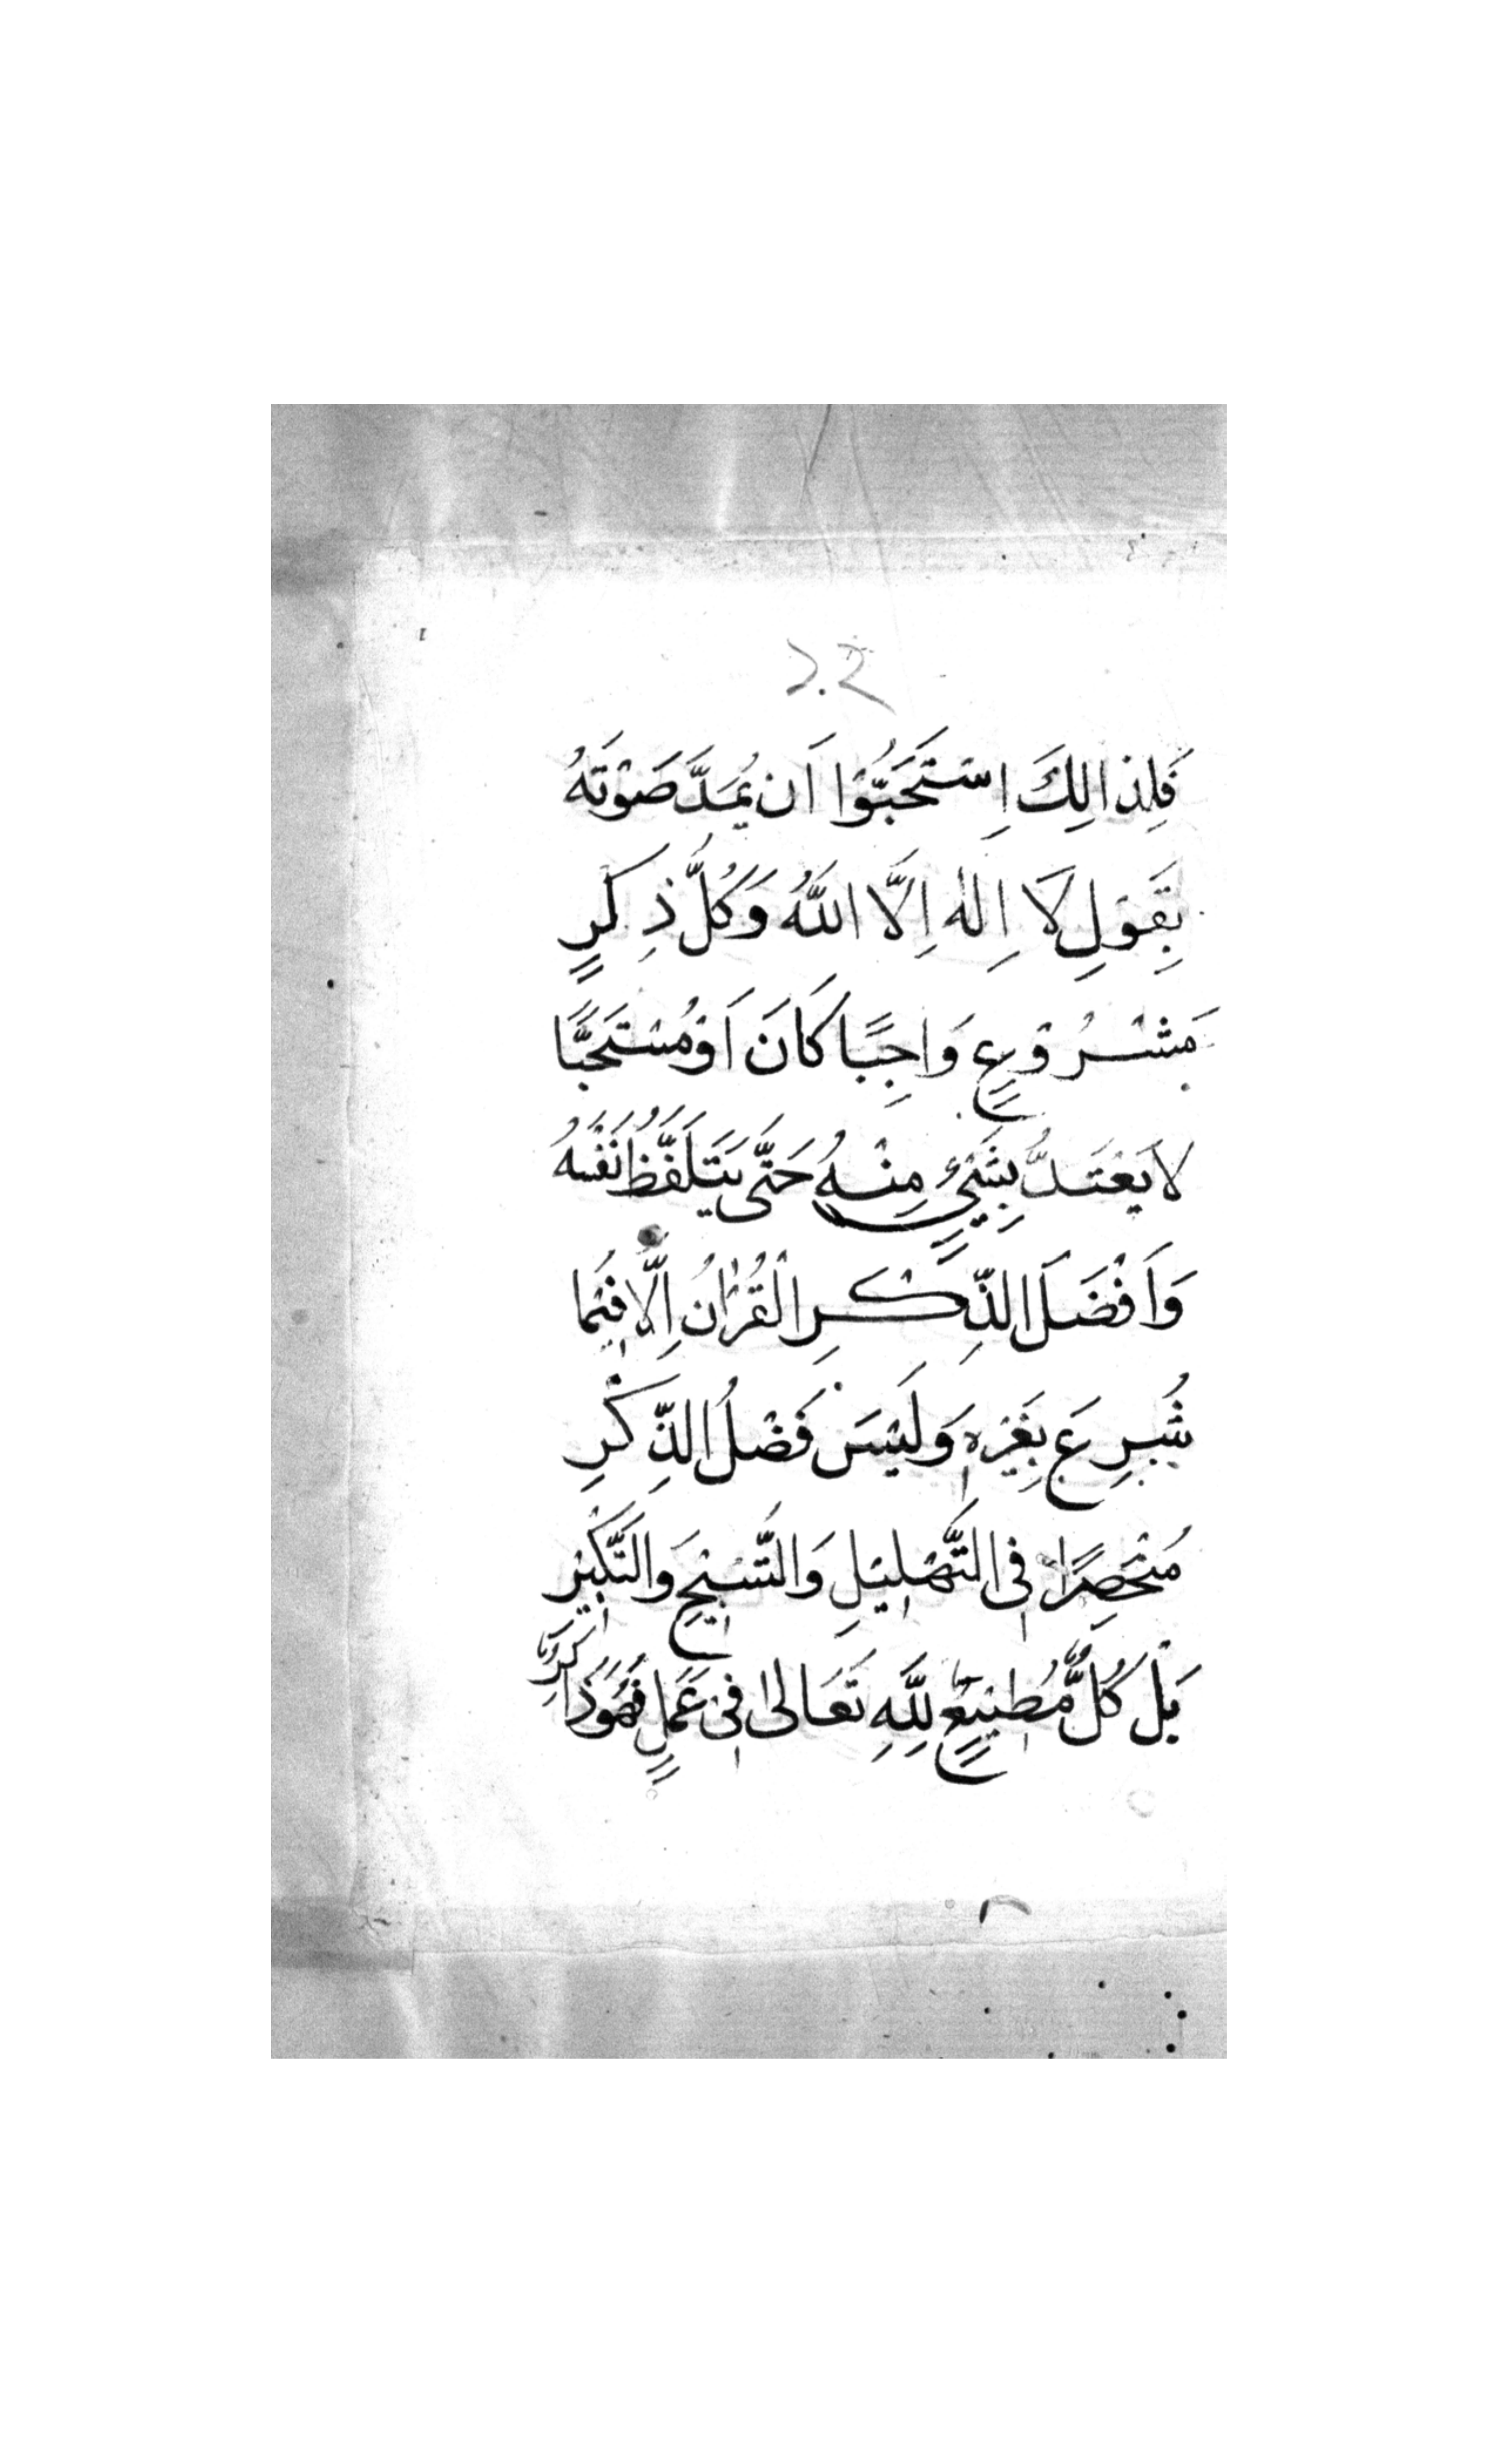 فَلِذَالِكَ اِسْتَحَبُّوْا اَن يُمَدَّ صَوْتَهُ
بِقَوْلِ لَا اِلٰهَ اِلَّا اللّٰهُ وَكُلُّ ذِكْرٍ
مَشْرُوْعٍ وَاجِبًا كَانَ اَوْ مُسْتَحَبًّا
لَا يَعْتَدُّ بِشَيْءٍ مِنْهُ حَتّٰى يَتَلَفَّظُ نَفْسَهُ
وَاَفْضَلَ الذِّكْرِ الْقُرْاٰنُ اِلَّا فِيْمَا
شُرِعَ بِغَيْرِهٖ وَلَيْسَ فَضْلُ الذِّكْرِ
مُنْحَصِرًا فِى التَّهْلِيْلِ وَالتَّسْبِيْحِ وَالتَّكْبِيْرِ
بَلْ كُلُّ مُّطِيْعٍ لِلّٰهِ تَعَالٰى فِىْ عَمَلٍ فَهُوَ ذَاكِرٌ